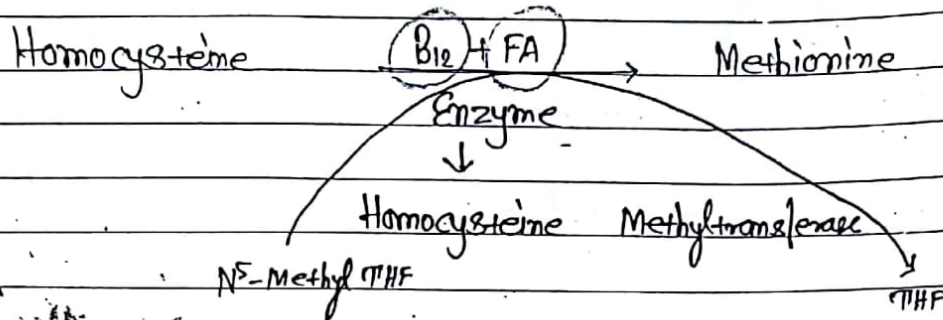 Homocysteine B12 + FA → Methionine
Enzyme
↓
Homocysteine Methyltransferase
N5-Methyl THF THF